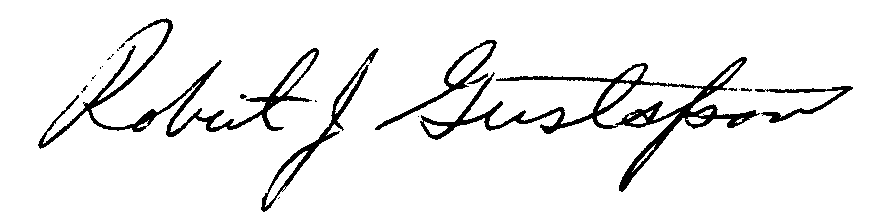 Robert J Gustafson